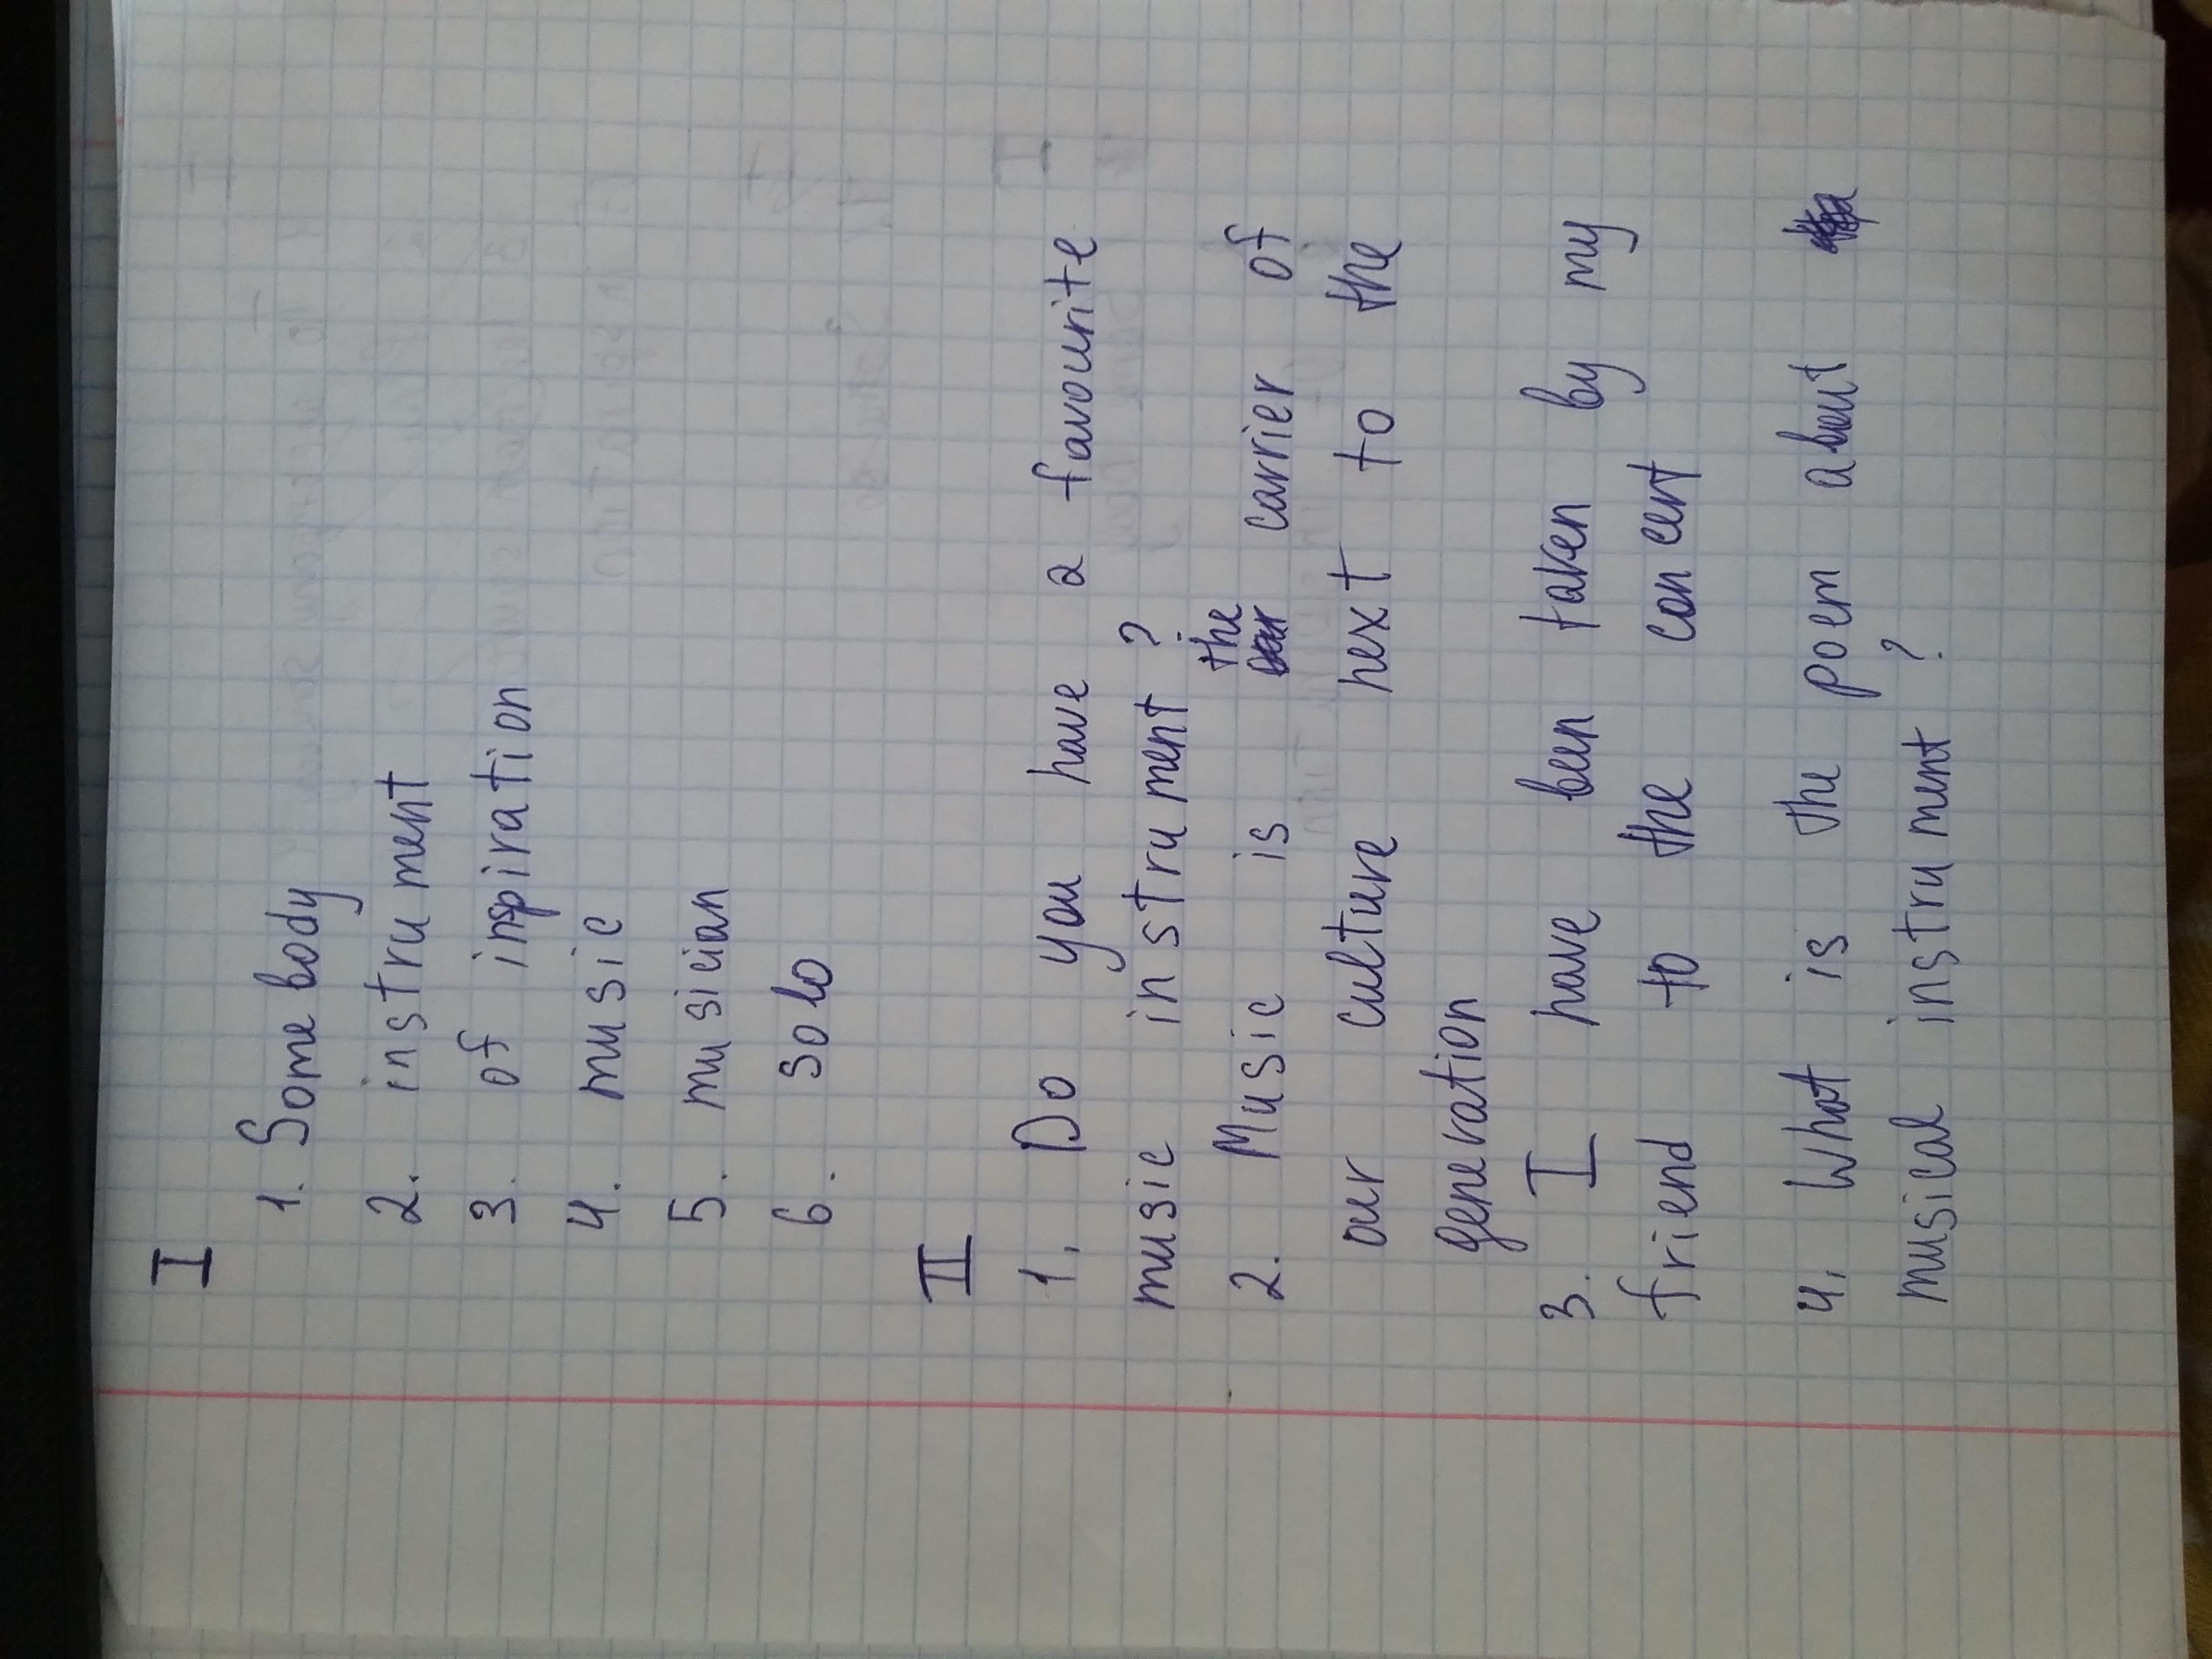 I
1. Somebody
2. instrument
3. of inspiration
4. music
5. musician
6. solo
II
1. Do you have a favourite
music instrument?
2. Music is the carrier of
our culture next to the
generation
3. I have been taken by my
friend to the concert
4. What is the poem about
musical instrument?